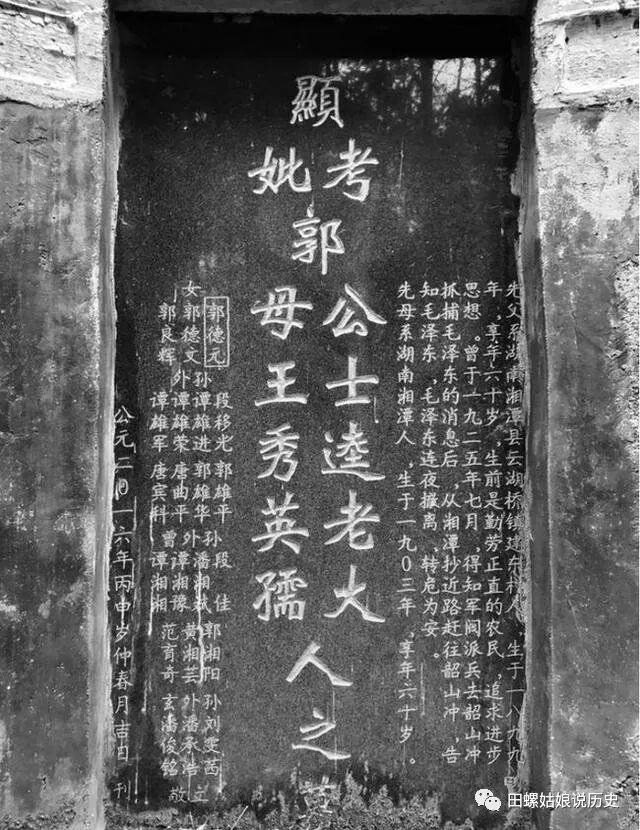 先父系湖南湘潭县云湖桥镇建东村人，生于一八九九
年，享年六十岁。生前是勤劳正直的农民，追求进步
思想。曾于一九二五年七月，得知军阀派兵去韶山冲
抓捕毛泽东的消息后，从湘潭抄近路赶往韶山冲，告
知毛泽东，毛泽东连夜撤离，转危为安。
先母系湖南湘潭人，生于一九〇三年，享年六十岁。
顯
考
妣
郭
公士逵老大
母王秀英孺
人之
郭德元
女郭德文
郭良辉
段移光 郭雄平 段佳 郭湘阳 刘雯茜
孙谭雄进 郭雄华 孙潘湘 黄湘芸 孙潘承浩 立
外谭雄荣 唐曲平 外谭湘豫 范育奇 外玄潘俊铭 敬
谭雄军 唐宾科 曾谭湘湘
公元二〇一六年丙申岁仲春月吉日 刊
田螺姑娘说历史